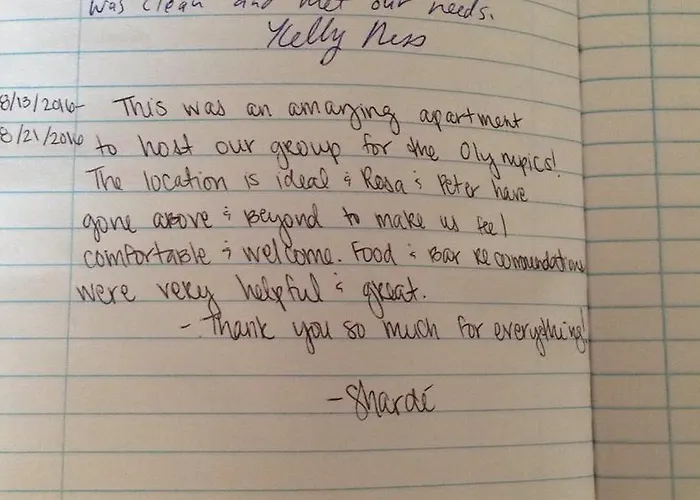 was clean and met our needs.
Kelly Ness
8/13/2016- This was an amazing apartment
8/21/2016 to host our group for the Olympics!
The location is ideal & Rosa & Peter have
gone above & Beyond to make us feel
comfortable & welcome. Food & Bar Recommendations
were very helpful & great.
- Thank you so much for everything!
- Shardé